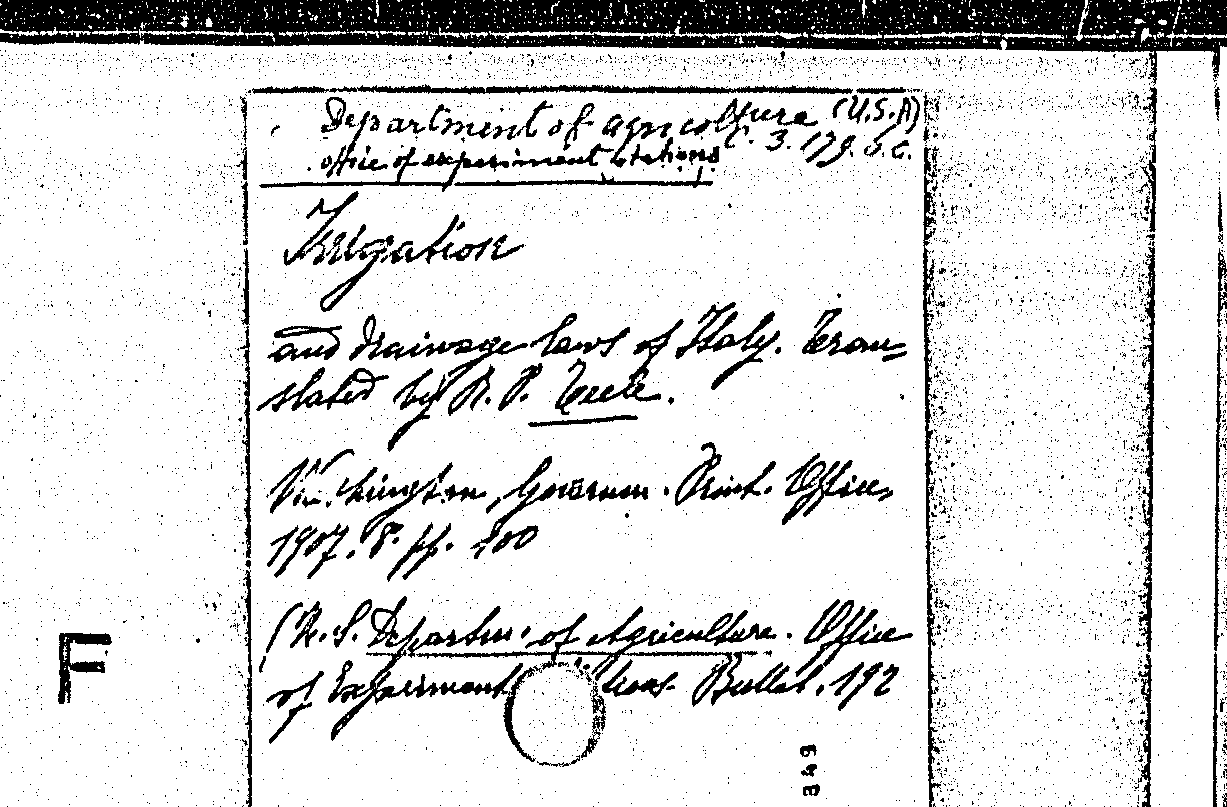 Department of agriculture (U.S.A)
office of experiment stations C. 3. 179. b. c.
Irrigation
and drainage laws of Italy. Tran-
slated by R. P. Teele.
Washington, Governm. Print. Office,
1907. 8.° pp. 100
(U. S. Departm. of Agriculture. Office
of Experiment tions. Bullet. 192
F
349